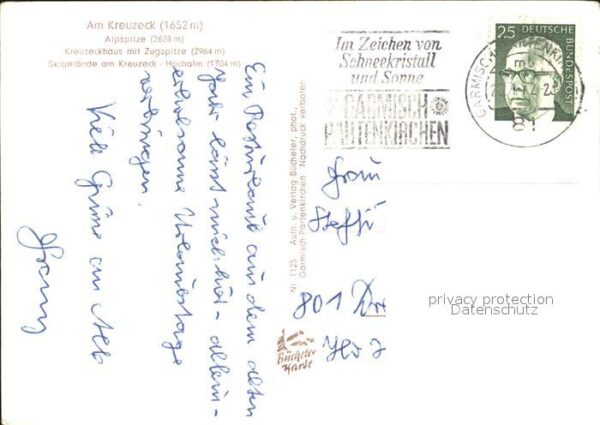 Am Kreuzeck (1652 m)
Alpspitze (2628 m)
Kreuzeckhaus mit Zugspitze (2964 m)
Skigelände am Kreuzeck - Hochalm (1704 m)
Ein Resturlaub aus dem alten
Jahr lässt mich hier - allein -
erholsame Urlaubstage
verbringen.
Viele Grüße an Alle
Nr. 1125 Aufn. u. Verlag Bücheler, phot.,
Garmisch-Partenkirchen Nachdruck verboten
Im Zeichen von
Schneekristall
und Sonne
GARMISCH
PARTENKIRCHEN
25
DEUTSCHE
BUNDESPOST
GARMISCH-PARTENKIRCHEN
Frau
Steffi
801
privacy protection
Datenschutz
Bücheler
Karte